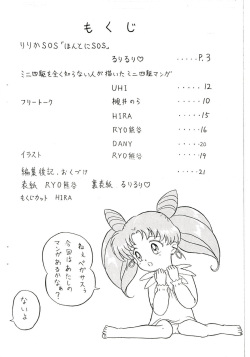 もくじ
りりかSOS『ほんとにSOS』
るりるり♡ ‥‥‥P.3
ミニ四駆を全く知らない人が描いたミニ四駆マンガ
UHI ‥‥‥12
フリートーク 桃井のろ ‥‥‥10
HIRA ‥‥‥15
RYO熊谷 ‥‥‥16
DANY ‥‥‥20
イラスト RYO熊谷 ‥‥‥19
編集後記、おしつけ ‥‥‥21
表紙 RYO熊谷 裏表紙 るりるり♡
もくじカット HIRA
ねぇペガサスぅ
今回はあたしの
マンガあるかなぁ?
ないよ